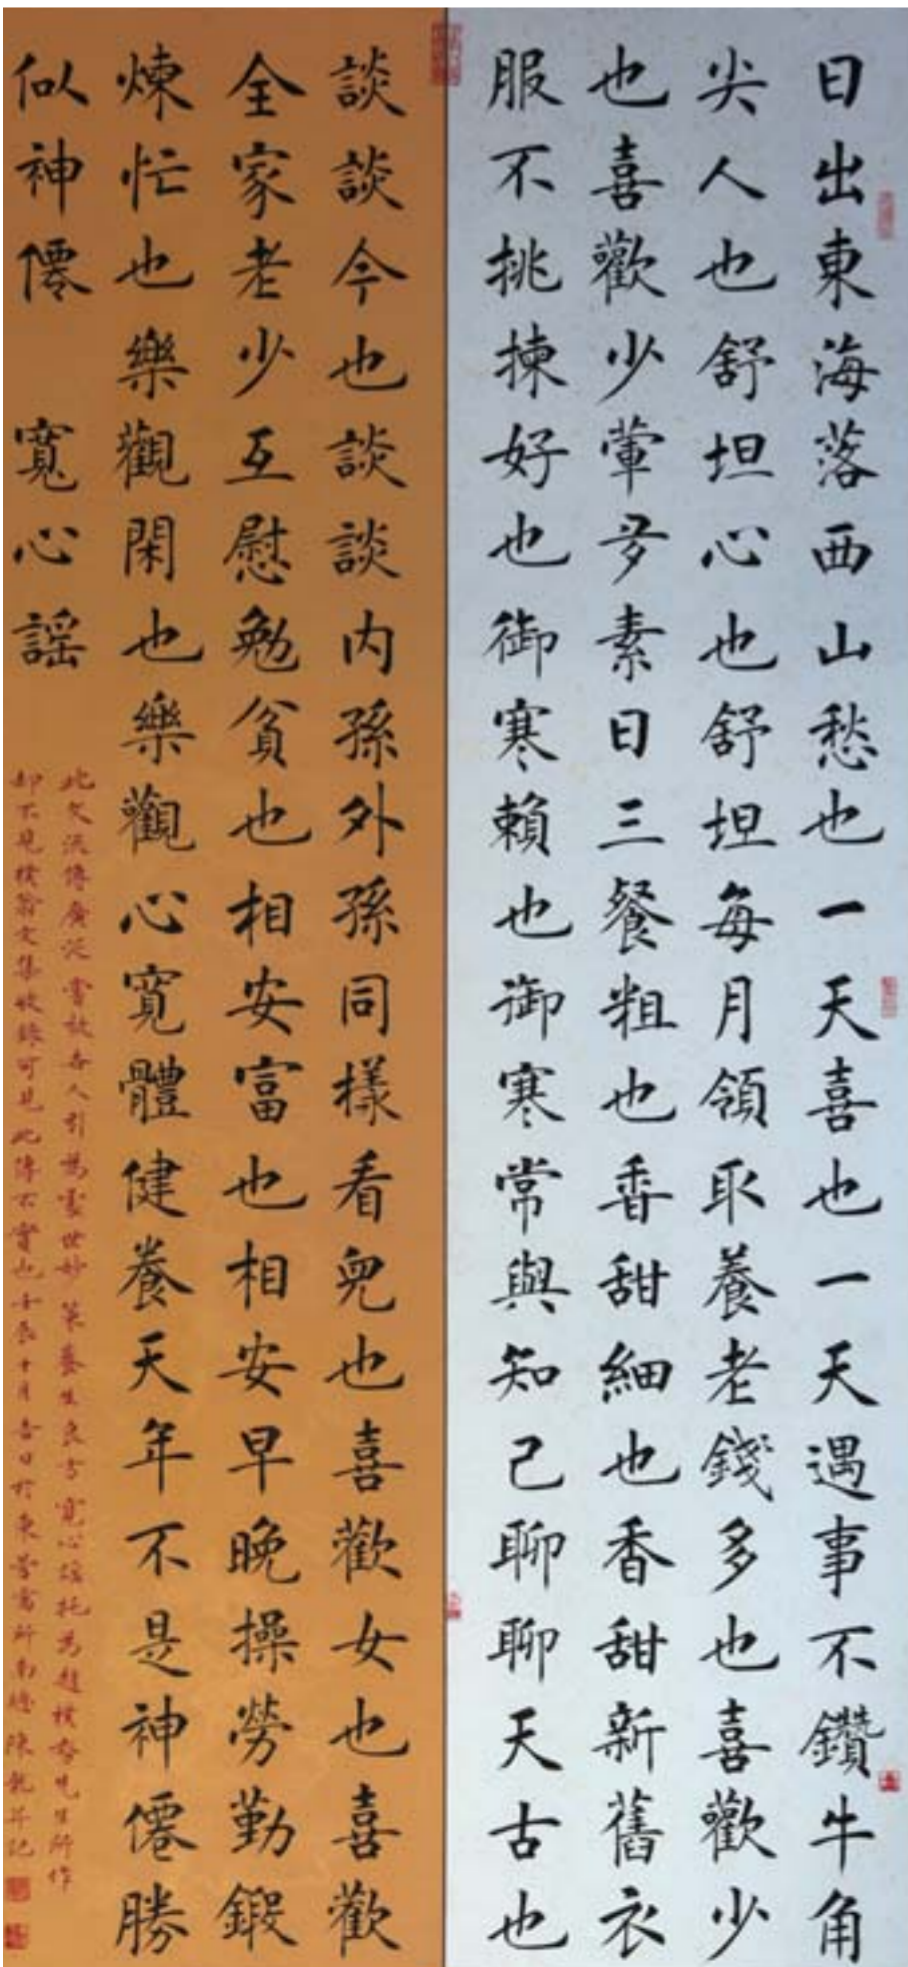 日出東海落西山愁也一天喜也一天遇事不鑽牛角
尖人也舒坦心也舒坦每月領取養老錢多也喜歡少
也喜歡少葷多素日三餐粗也香甜細也香甜新舊衣
服不挑揀好也御寒賴也御寒常與知己聊聊天古也
談談今也談談内孫外孫同樣看兒也喜歡女也喜歡
全家老少互慰勉貧也相安富也相安早晚操勞勤鍛
煉忙也樂觀閑也樂觀心寬體健養天年不是神僊勝
似神僊 寬心謡
此文流傳廣泛常被各人引為處世妙策養生良方寬心謡托為趙樸初先生所作
却不見樸翁文集收錄可見此傳不實也壬辰十月吉日於東營寓所南 陳乾 記